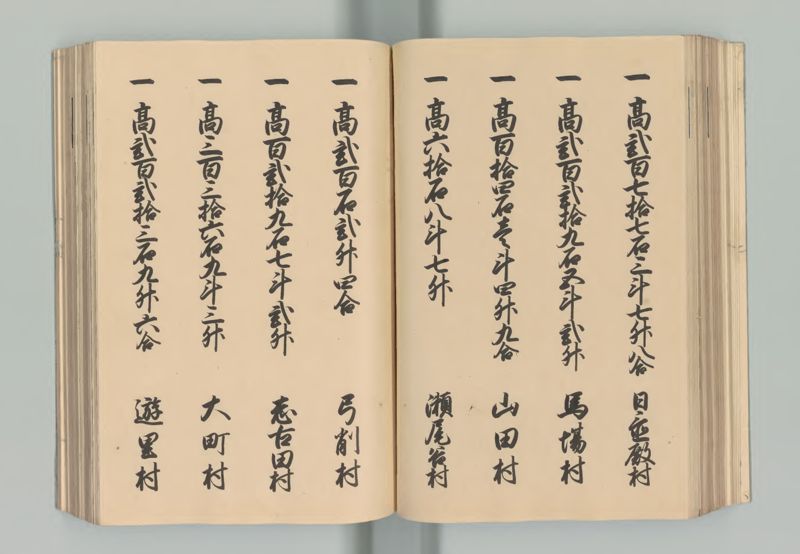 一 高弐百七拾七石三斗七升八合 日置殿村
一 高弐百弐拾九石五斗弐升 馬場村
一 高百拾四石壱斗四升九合 山田村
一 高六拾石八斗七升 瀬尾谷村
一 高弐百石弐升四合 弓削村
一 高百弐拾九石七斗弐升 志古田村
一 高三百三拾六石九斗三升 大町村
一 高弐百弐拾三石九升六合 遊里村